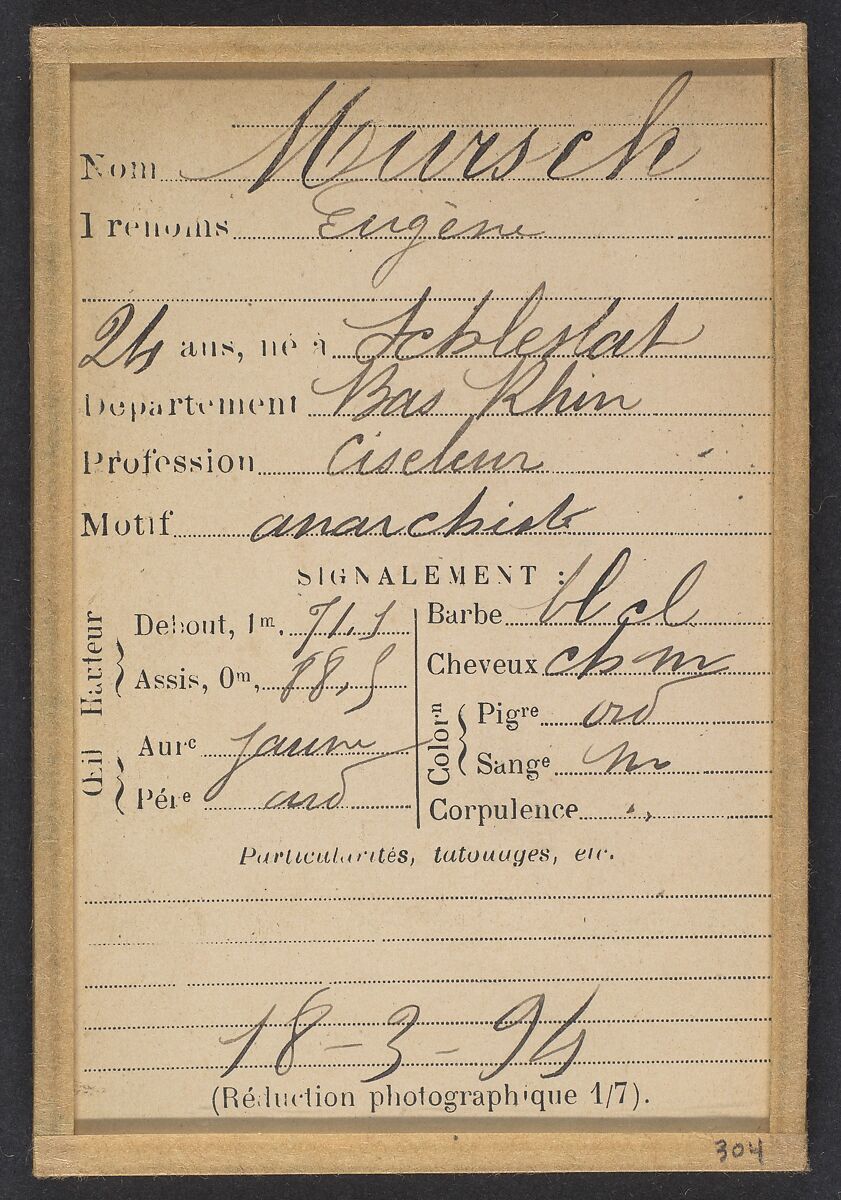 Nom Mursch
Prénoms Eugène
24 ans, né à Schlestat
Département Bas Rhin
Profession Ciseleur
Motif anarchiste
SIGNALEMENT :
Hauteur
Debout, 1m, 71,1
Assis, 0m, 88,5
Œil
Aure Jaune
Pére ord
Barbe bl cl
Cheveux ch m
Colorn
Pigre ord
Sange m
Corpulence "
Particularités, tatouages, etc.
18-3-94
(Réduction photographique 1/7).
304